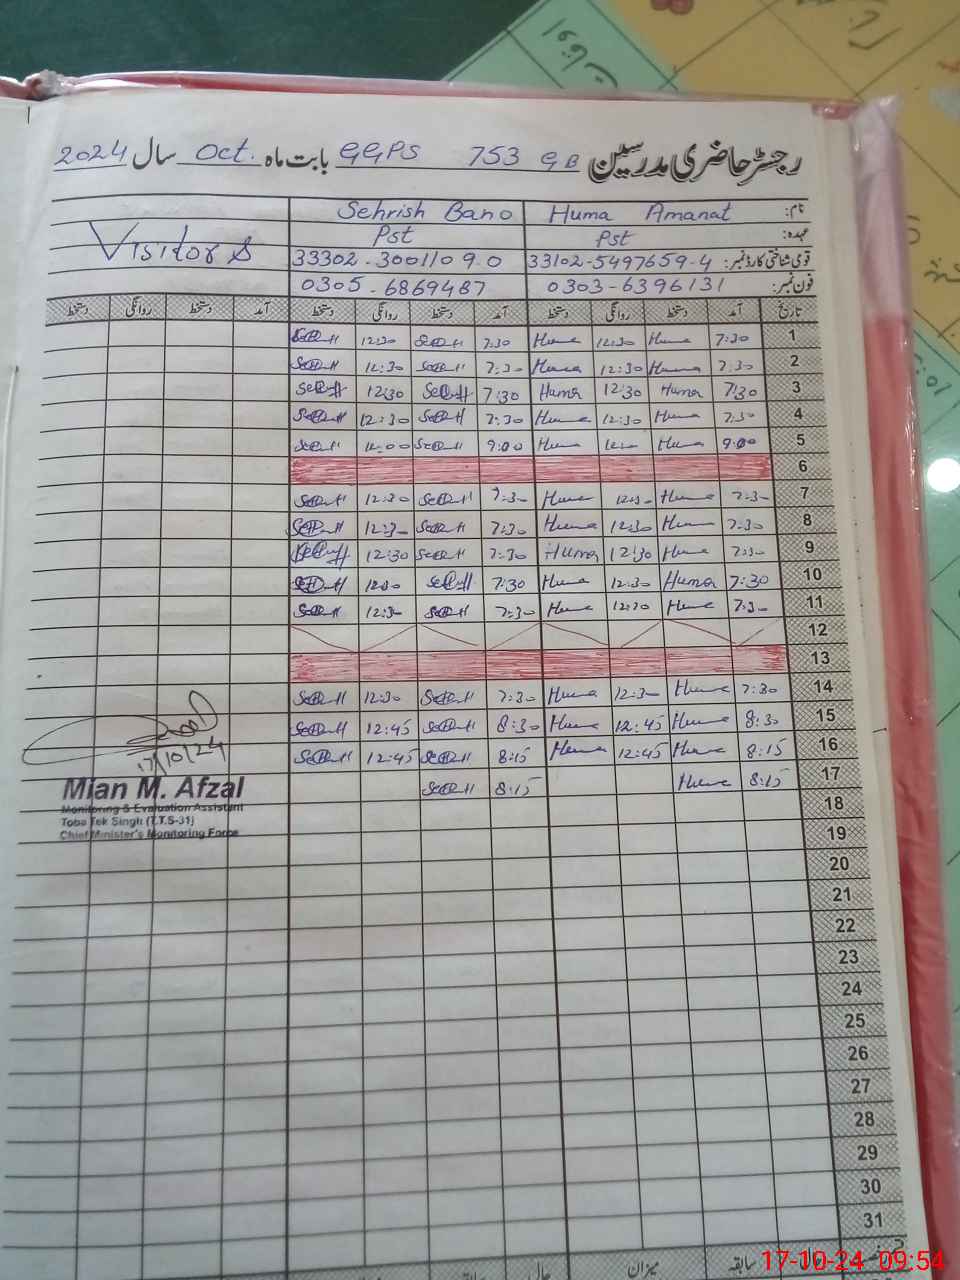 رجسٹر حاضری مدرسین GGPS 753 GB بابت ماہ Oct. سال 2024
نام: Huma Amanat Sehrish Bano
عہدہ: Pst Pst Visitors
قومی شناختی کارڈ نمبر: 33102-5497659-4 33302-3001109-0
فون نمبر: 0303-6396131 0305-6869487
تاریخ آمد دستخط روانگی دستخط آمد دستخط روانگی دستخط آمد دستخط روانگی دستخط
1 7:30 Huma 12:30 Huma 7:30 12:30
2 7:30 Huma 12:30 Huma 7:30 12:30
3 7:30 Huma 12:30 Huma 7:30 12:30
4 7:30 Huma 12:30 Huma 7:30 12:30
5 9:00 Huma Huma 9:00
6
7 7:30 Huma 12:30 Huma 7:30 12:30
8 7:30 Huma 12:30 Huma 7:30 12:30
9 7:30 Huma 12:30 Huma 7:30 12:30
10 7:30 Huma 12:30 Huma 7:30 12:30
11 7:30 Huma 12:30 Huma 7:30 12:30
12
13
14 7:30 Huma 12:30 Huma 7:30 12:30
15 8:30 Huma 12:45 Huma 8:30 12:45
16 8:15 Huma 12:45 Huma 8:15 12:45
17 8:15 Huma 8:15
17/10/24
Mian M. Afzal
Monitoring & Evaluation Assistant
Toba Tek Singh (T.T.S-31)
Chief Minister's Monitoring Force
18
19
20
21
22
23
24
25
26
27
28
29
30
31
سابقہ میزان حال
17-10-24 09:54